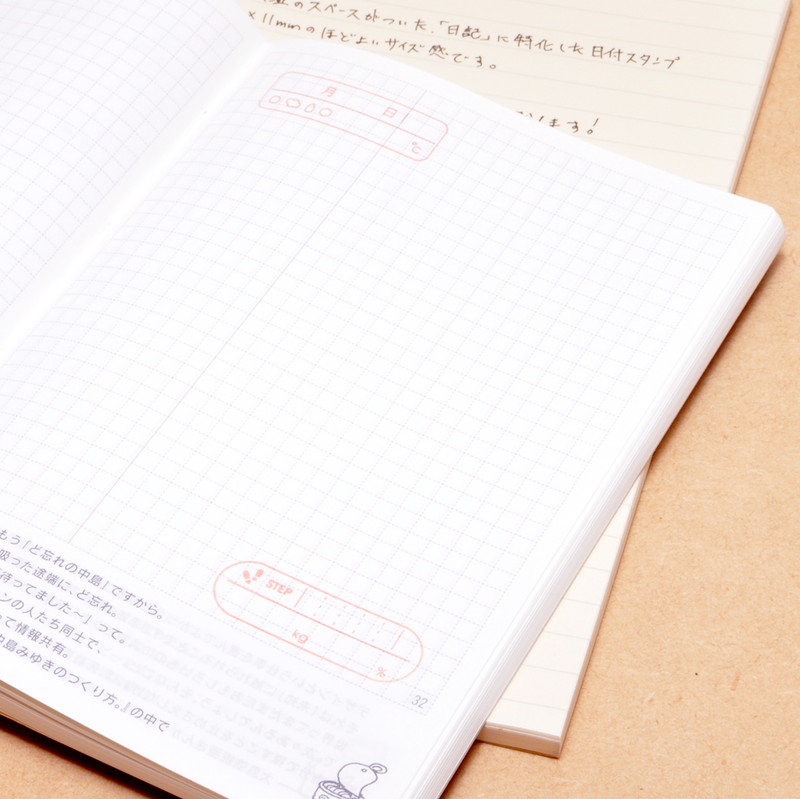 のスペースがついた、「日記」に特化した日付スタンプ
×11mmのほどよいサイズ感です。
ます!
月 日
℃
STEP
kg
%
32
もう「ど忘れの中島」ですから。
吸った途端に、ど忘れ。
待ってました〜」って。
ンの人たち同士で、
って情報共有。
中島みゆきのつくり方。』の中で